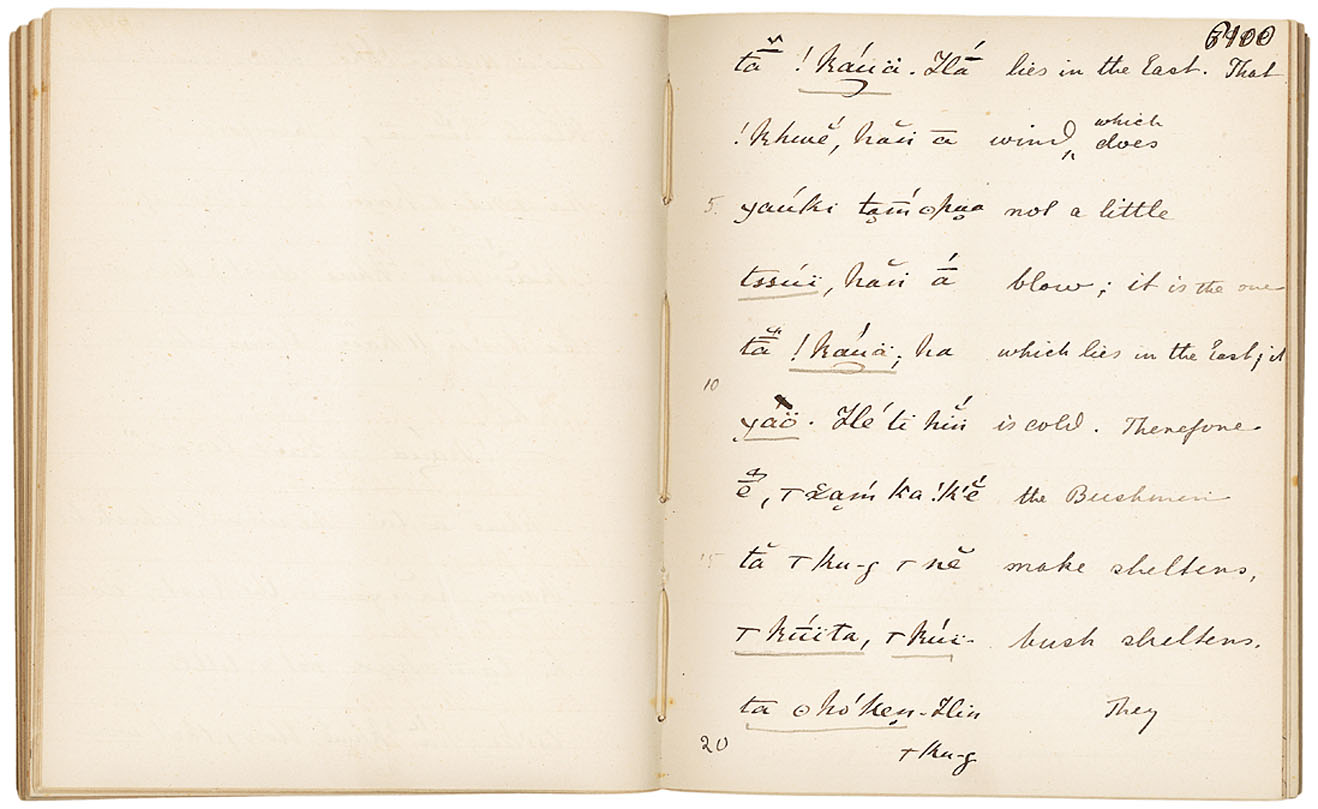 6100
tā̆ !káuä. Hā́ lies in the East. That
!khwĕ́, hăń ā wind, which does
5. yaúki ta̰ḿ ⊙pṵa not a little
tssúï, hăń ā́ blow; it is the one
tā̆ !káuä; ha which lies in the East; it
10
yáö. Hé ti hĭń is cold. Therefore
ē̆, ꞇxa̰ḿ ka !k'ĕ́ the Bushmen
15 tă ꞇku-g ꞇnĕ make shelters,
ꞇkúïta, ꞇkúï- bush shelters.
ta ⊙hó̤ken-Hin They
20 ꞇku-g